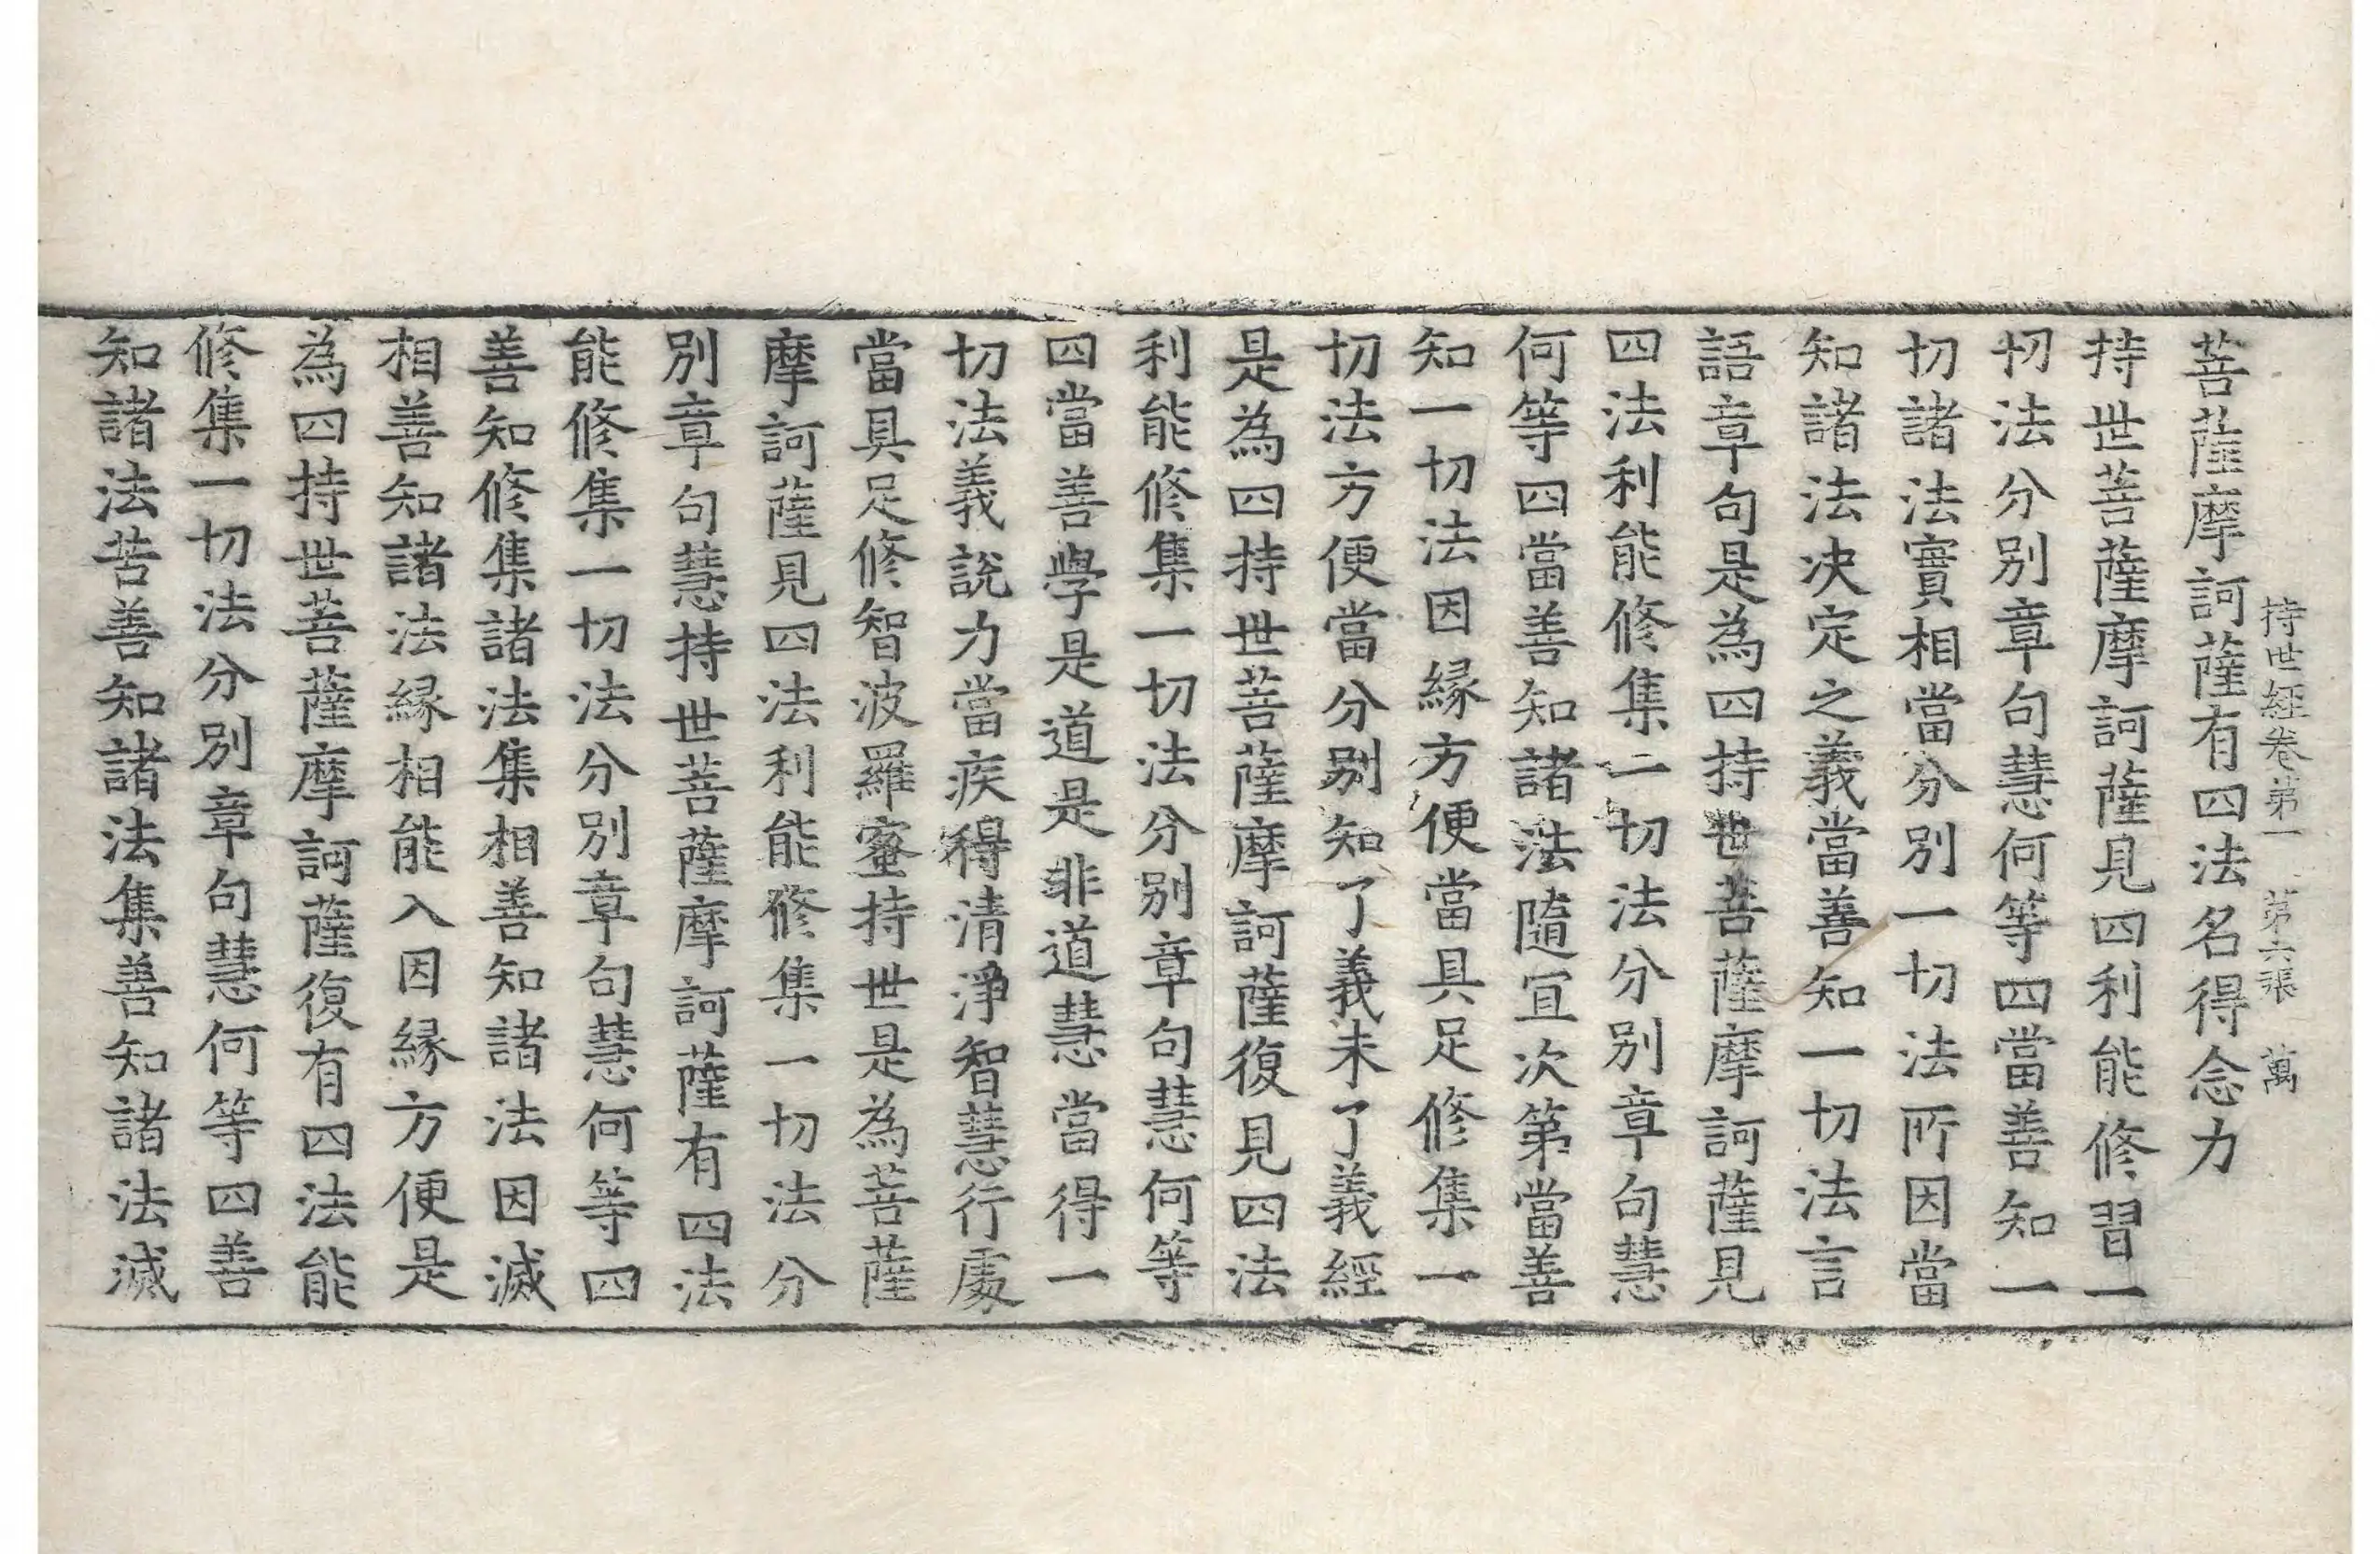 持世經卷第一　第六張　萬
菩薩摩訶薩有四法名得念力
持世菩薩摩訶薩見四利能修習一
切法分別章句慧何等四當善知一
切諸法實相當分別一切法所因當
知諸法决定之義當善知一切法言
語章句是為四持世菩薩摩訶薩見
四法利能修集一切法分別章句慧
何等四當善知諸法隨宜次第當善
知一切法因緣方便當具足修集一
切法方便當分別知了義未了義經
是為四持世菩薩摩訶薩復見四法
利能修集一切法分別章句慧何等
四當善學是道是非道慧當得一
切法義說力當疾得清淨智慧行處
當具足修智波羅蜜持世是為菩薩
摩訶薩見四法利能修集一切法分
別章句慧持世菩薩摩訶薩有四法
能修集一切法分別章句慧何等四
善知修集諸法集相善知諸法因滅
相善知諸法緣相能入因緣方便是
為四持世菩薩摩訶薩復有四法能
修集一切法分別章句慧何等四善
知諸法苦善知諸法集善知諸法滅